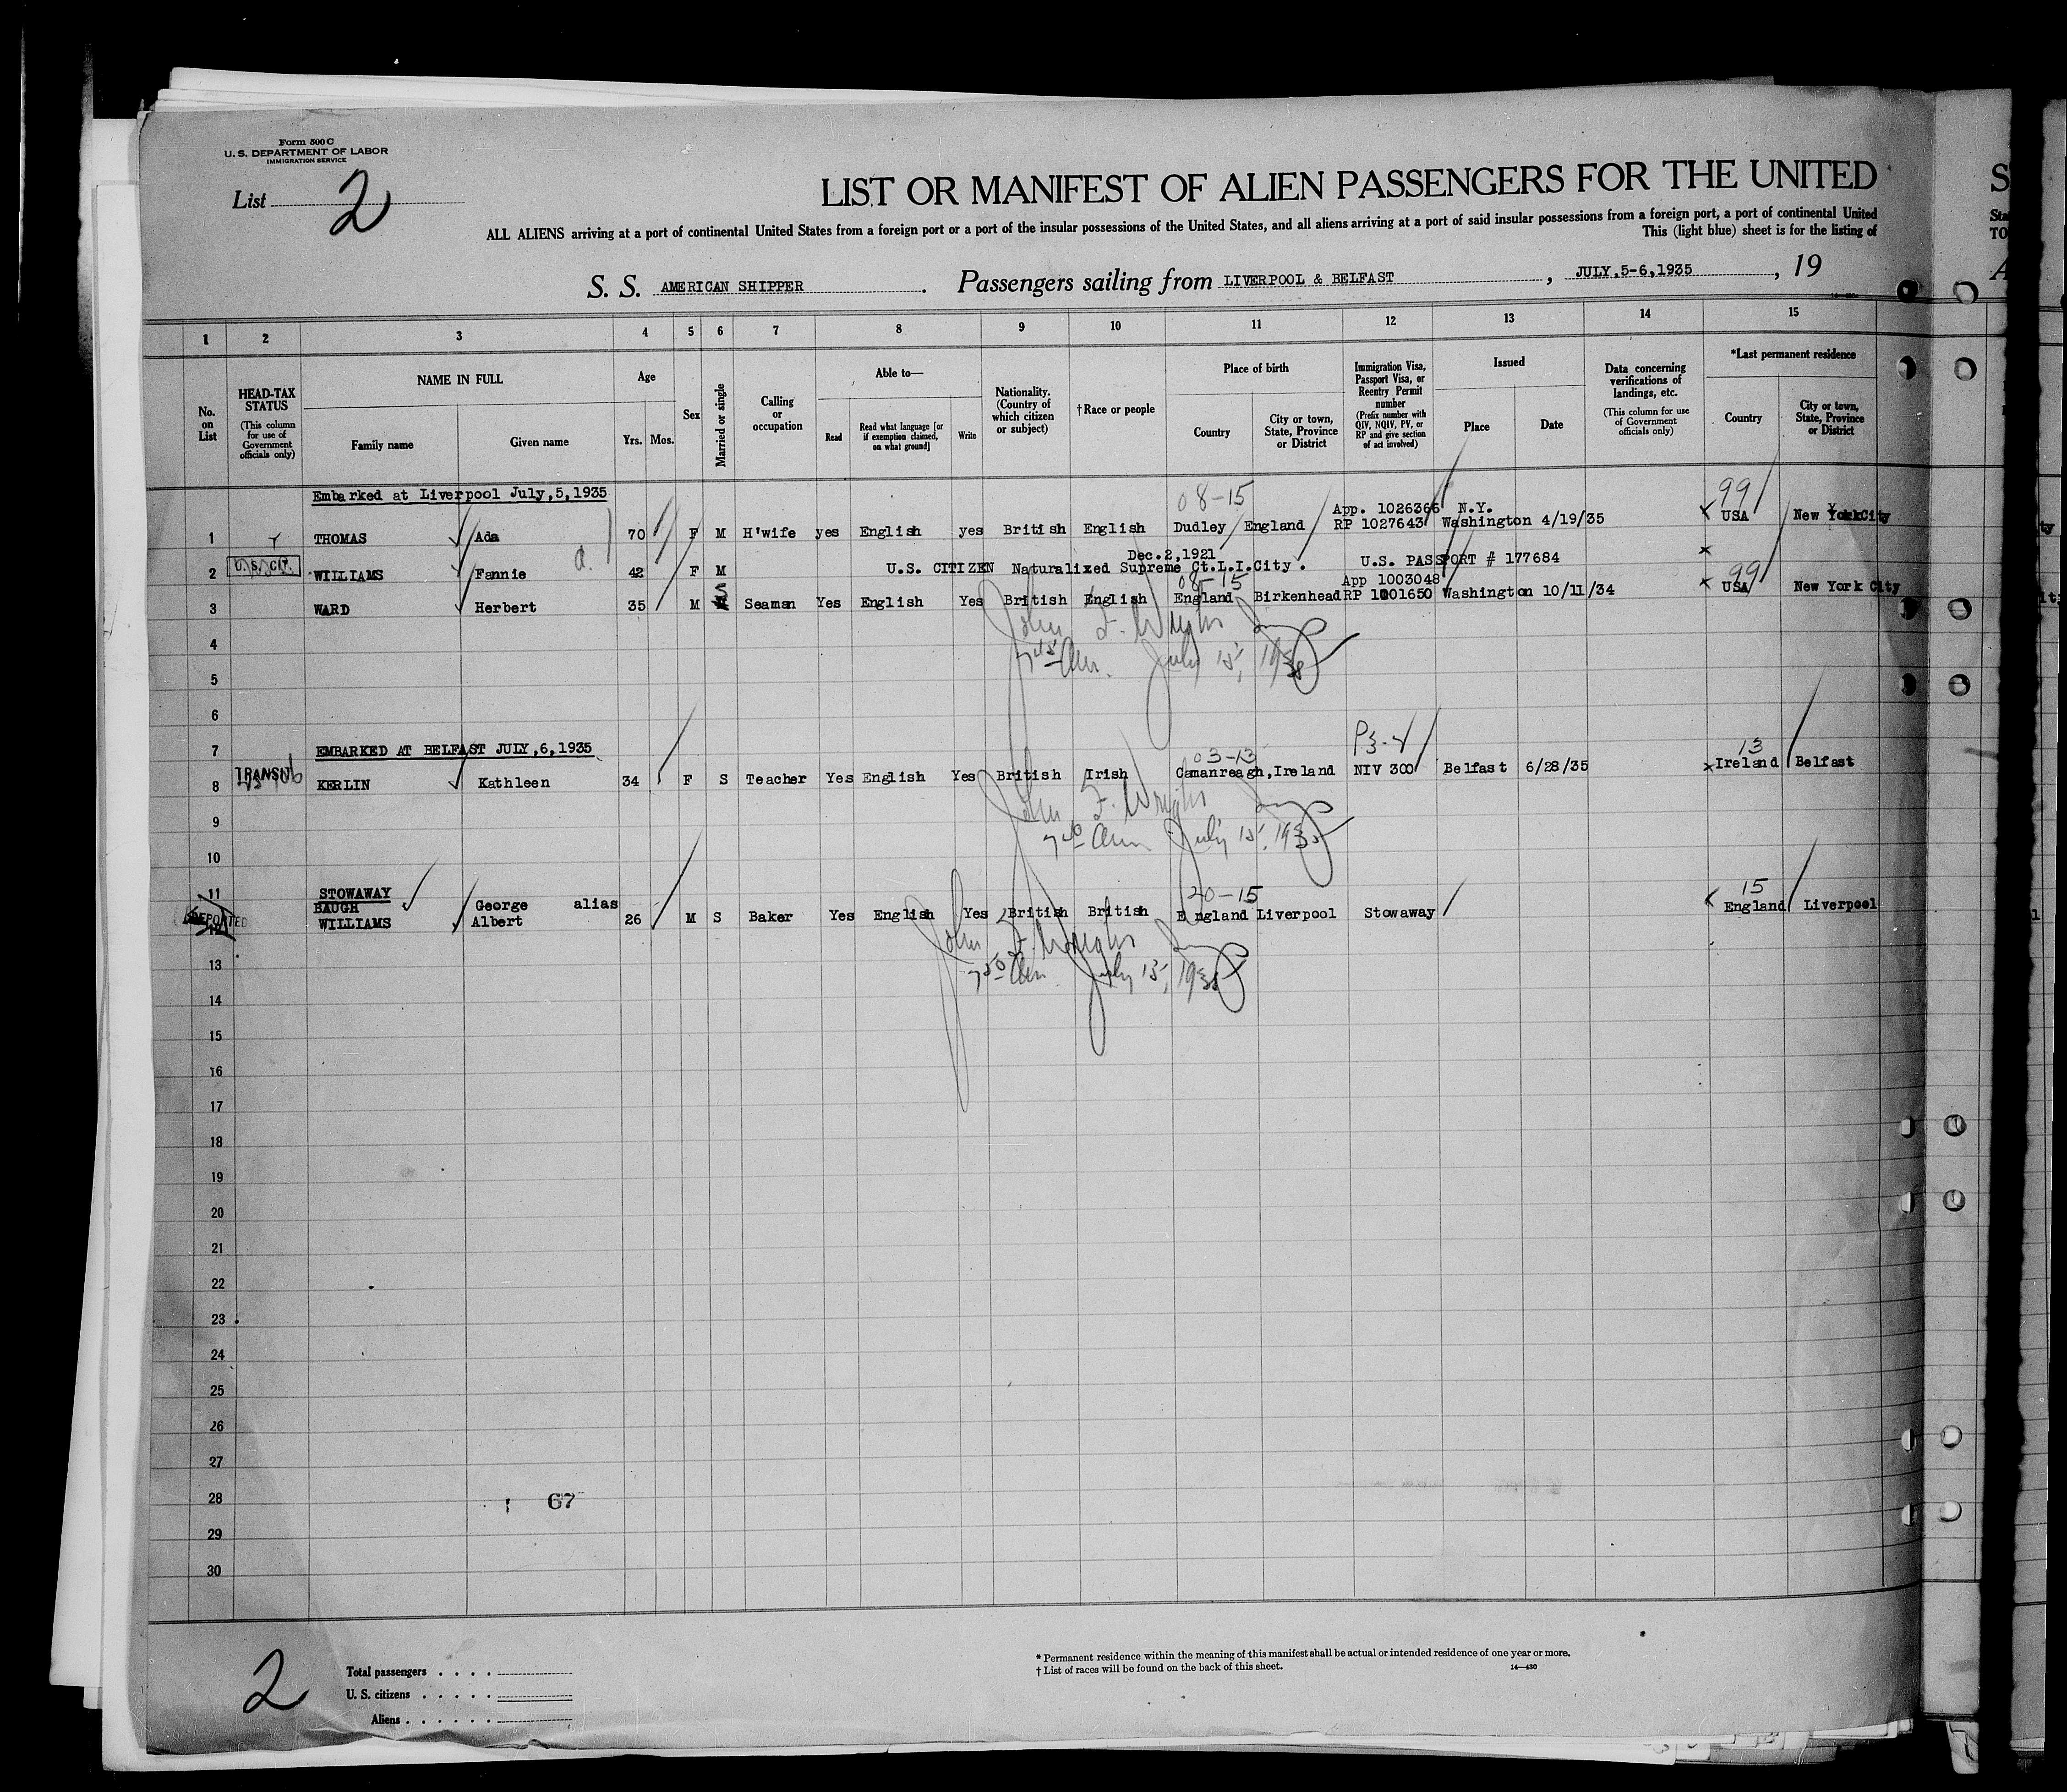 Form 500 C
U. S. DEPARTMENT OF LABOR
IMMIGRATION SERVICE
List 2
LIST OR MANIFEST OF ALIEN PASSENGERS FOR THE UNITED
ALL ALIENS arriving at a port of continental United States from a foreign port or a port of the insular possessions of the United States, and all aliens arriving at a port of said insular possessions from a foreign port, a port of continental United
This (light blue) sheet is for the listing of
S. S. AMERICAN SHIPPER . Passengers sailing from LIVERPOOL & BELFAST , JULY,5-6,1935 , 19
1 2 3 4 5 6 7 8 9 10 11 12 13 14 15
No. on List
HEAD-TAX STATUS
(This column for use of Government officials only)
NAME IN FULL
Family name
Given name
Age
Yrs. Mos.
Sex
Married or single
Calling or occupation
Able to—
Read
Read what language [or if exemption claimed, on what ground]
Write
Nationality. (Country of which citizen or subject)
†Race or people
Place of birth
Country
City or town, State, Province or District
Immigration Visa, Passport Visa, or Reentry Permit number
(Prefix number with QIV, NQIV, PV, or RP and give section of act involved)
Issued
Place
Date
Data concerning verifications of landings, etc.
(This column for use of Government officials only)
*Last permanent residence
Country
City or town, State, Province or District
Embarked at Liverpool July,5,1935
08-15 99
App. 1026366 N.Y.
1 THOMAS Ada 70 F M H'wife yes English yes British English Dudley England RP 1027643 Washington 4/19/35 USA New York City
Dec.2,1921
2 U.S. CIT. WILLIAMS Fannie 42 F M U.S. CITIZEN Naturalized Supreme Ct.L.I.City. U.S. PASSPORT # 177684
08-15 App 1003048 99
3 WARD Herbert 35 M S Seaman Yes English Yes British English England Birkenhead RP 1001650 Washington 10/11/34 USA New York City
John F. Wright
4
July 15, 1935
5
6
7 EMBARKED AT BELFAST JULY,6,1935
03-13 13
TRANSIT
8 KERLIN Kathleen 34 F S Teacher Yes English Yes British Irish Camanreagh,Ireland NIV 300 Belfast 6/28/35 Ireland Belfast
John F. Wright
9
July 15, 1935
10
11 STOWAWAY
20-15 15
BAUGH George alias
DEPORTED
12 WILLIAMS Albert 26 M S Baker Yes English Yes British British England Liverpool Stowaway England Liverpool
John F. Wright
13
July 15, 1935
14
15
16
17
18
19
20
21
22
23
24
25
26
27
28 67
29
30
2
Total passengers
U. S. citizens
Aliens
* Permanent residence within the meaning of this manifest shall be actual or intended residence of one year or more.
† List of races will be found on the back of this sheet.
14—430